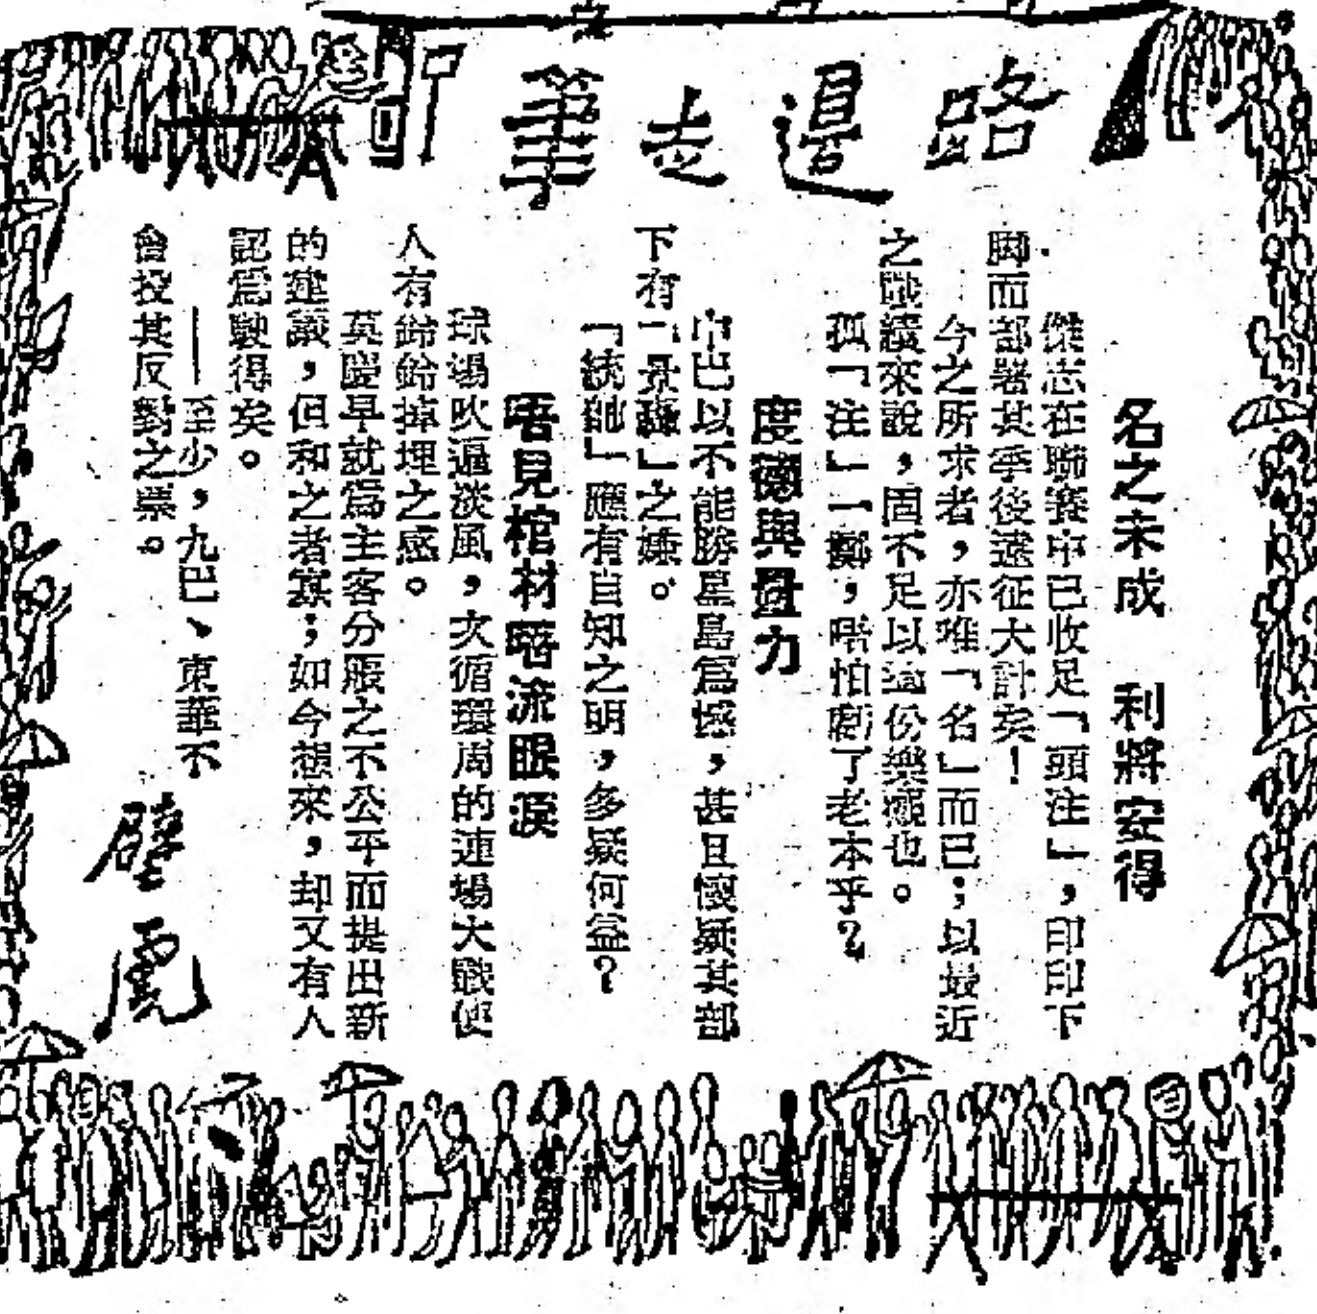 路邊走筆
名之未成　利將安得
傑志在聯賽中已收足「頭注」，印印下
脚而部署其季後遠征大計矣！
今之所求者，亦唯「名」而已；以最近
之戰績來說，固不足以言份樂觀也。
孤「注」一擲，唔怕蝕了老本乎？
度德與量力
中巴以不能勝星島爲憾，甚且懷疑其部
下有「景轟」之嫌。
「統帥」應有自知之明，多疑何益？
唔見棺材唔流眼淚
球場吹逼淡風，次循環周的連場大戰使
人有鈴鈴掉埋之感。
英慶早就爲主客分賬之不公平而提出新
的建議，但和之者寡；如今想來，却又有人
認爲駛得矣。
——至少，九巴、東華不
會投其反對之票。
壁虎